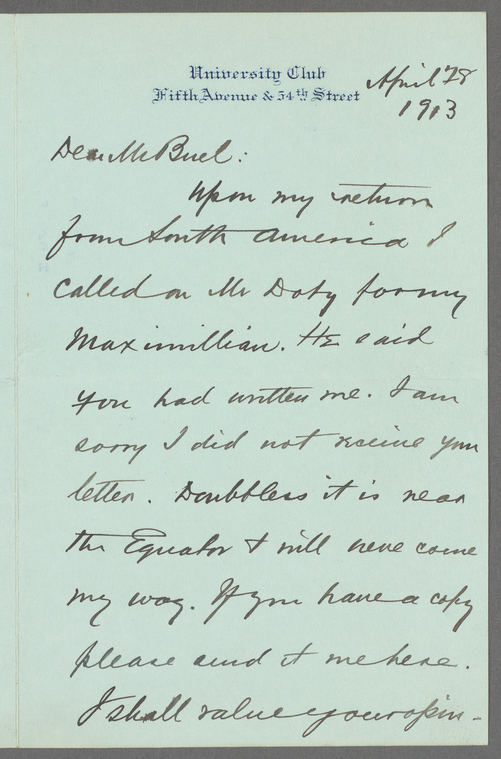 University Club
Fifth Avenue & 54th Street
April 28
1913
Dear Mr Buel:
Upon my return
from South America I
called on Mr Doty for my
Maximillian. He said
you had written me. I am
sorry I did not receive your
letter. Doubbless it is near
the Equator & will never come
my way. If you have a copy
please send it me here.
I shall value your opin-